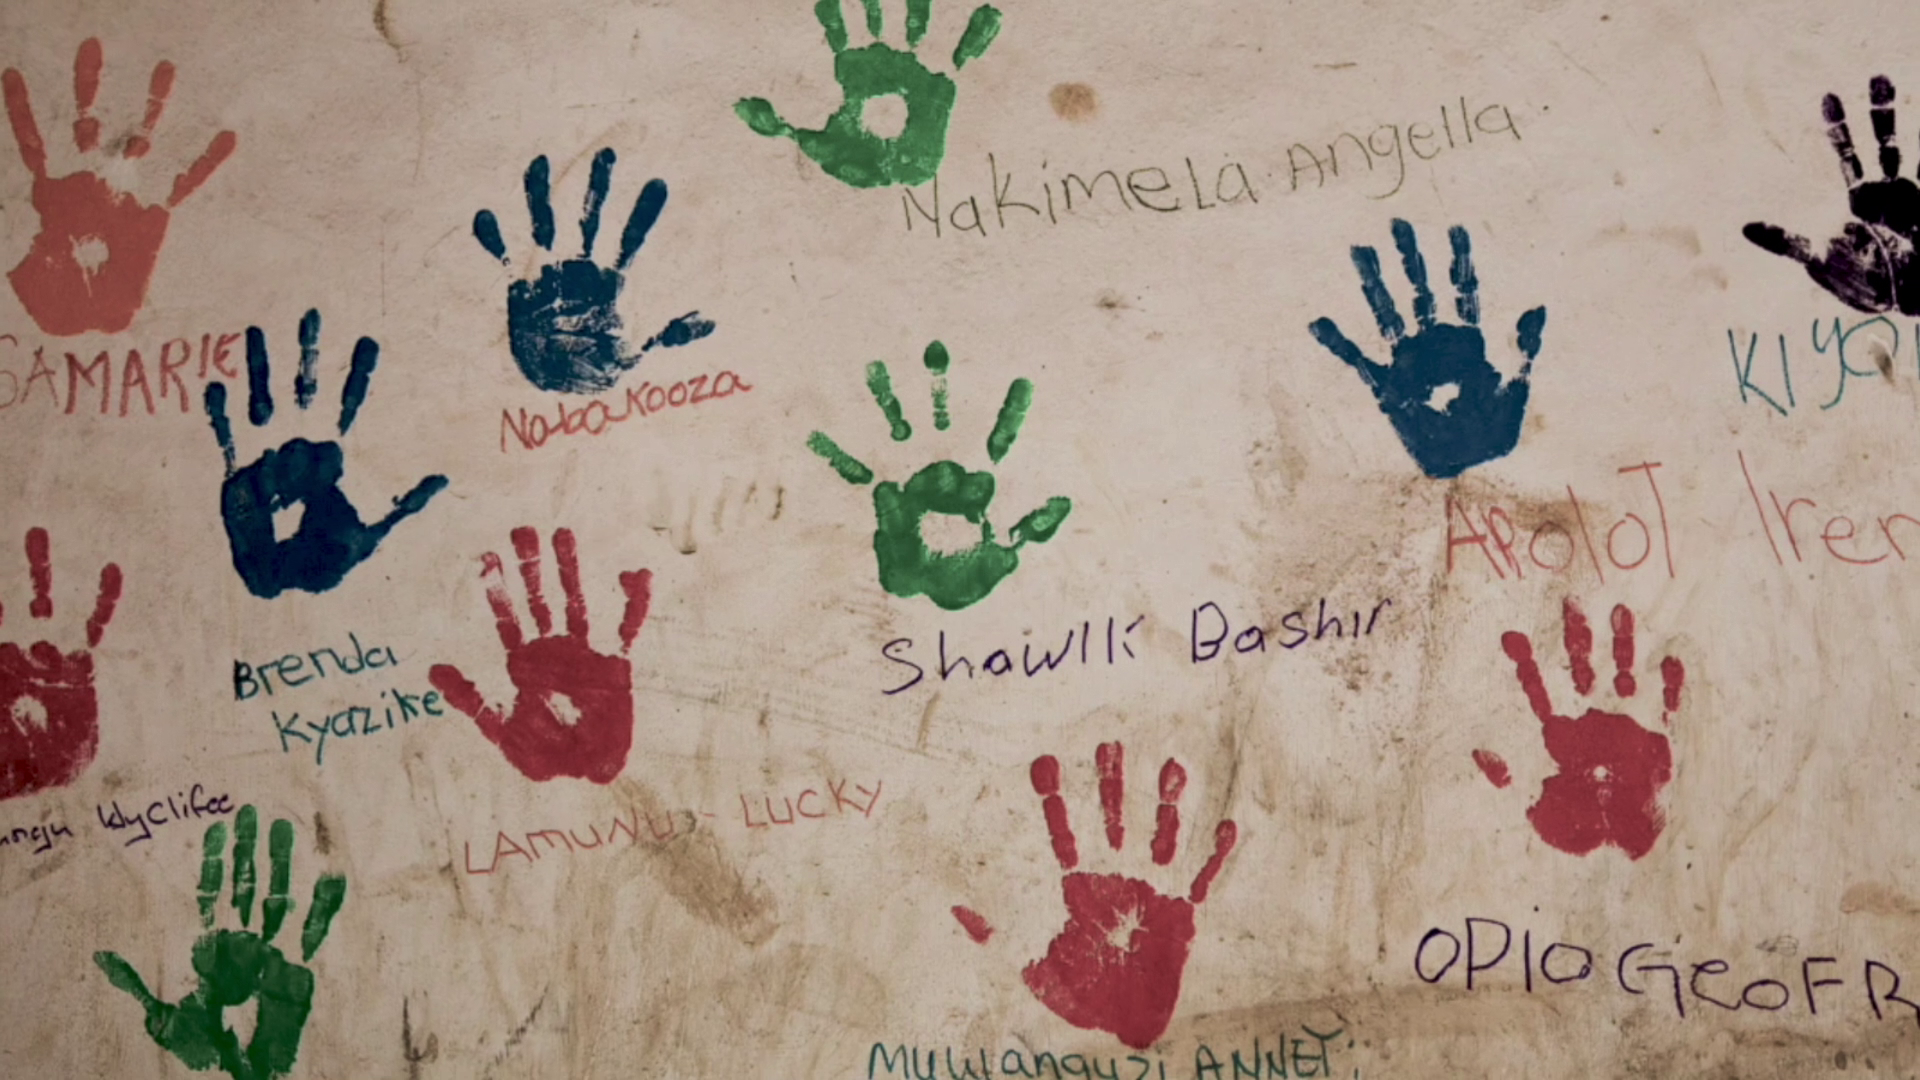 Nakimela Angella
SAMARIE
Nabakooza
KIYO
APOLOT Iren
Shawik Bashir
Brenda
Kyazike
Wyclifee
LAMUNU - LUCKY
OPIO GeOFR
MUWanguzi ANNET;